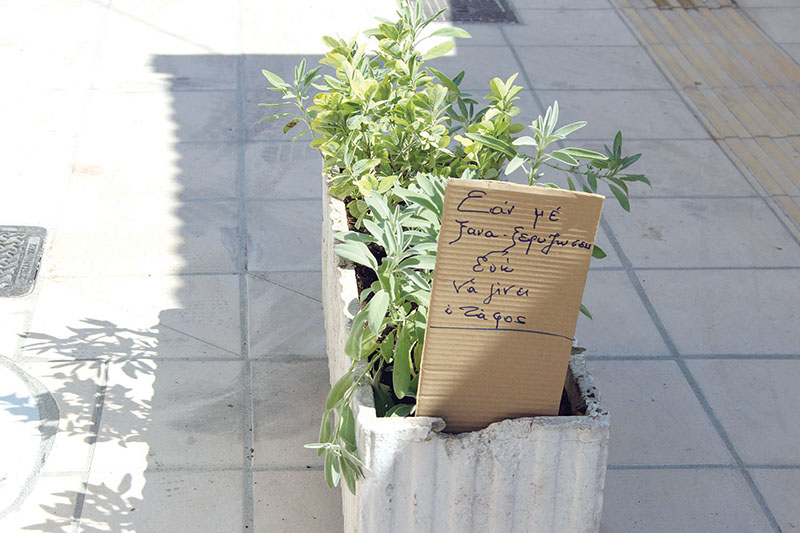 Εάν μέ
ξανα-ξερυζωσεις
Εδώ
Νά γινει
ο τάφος